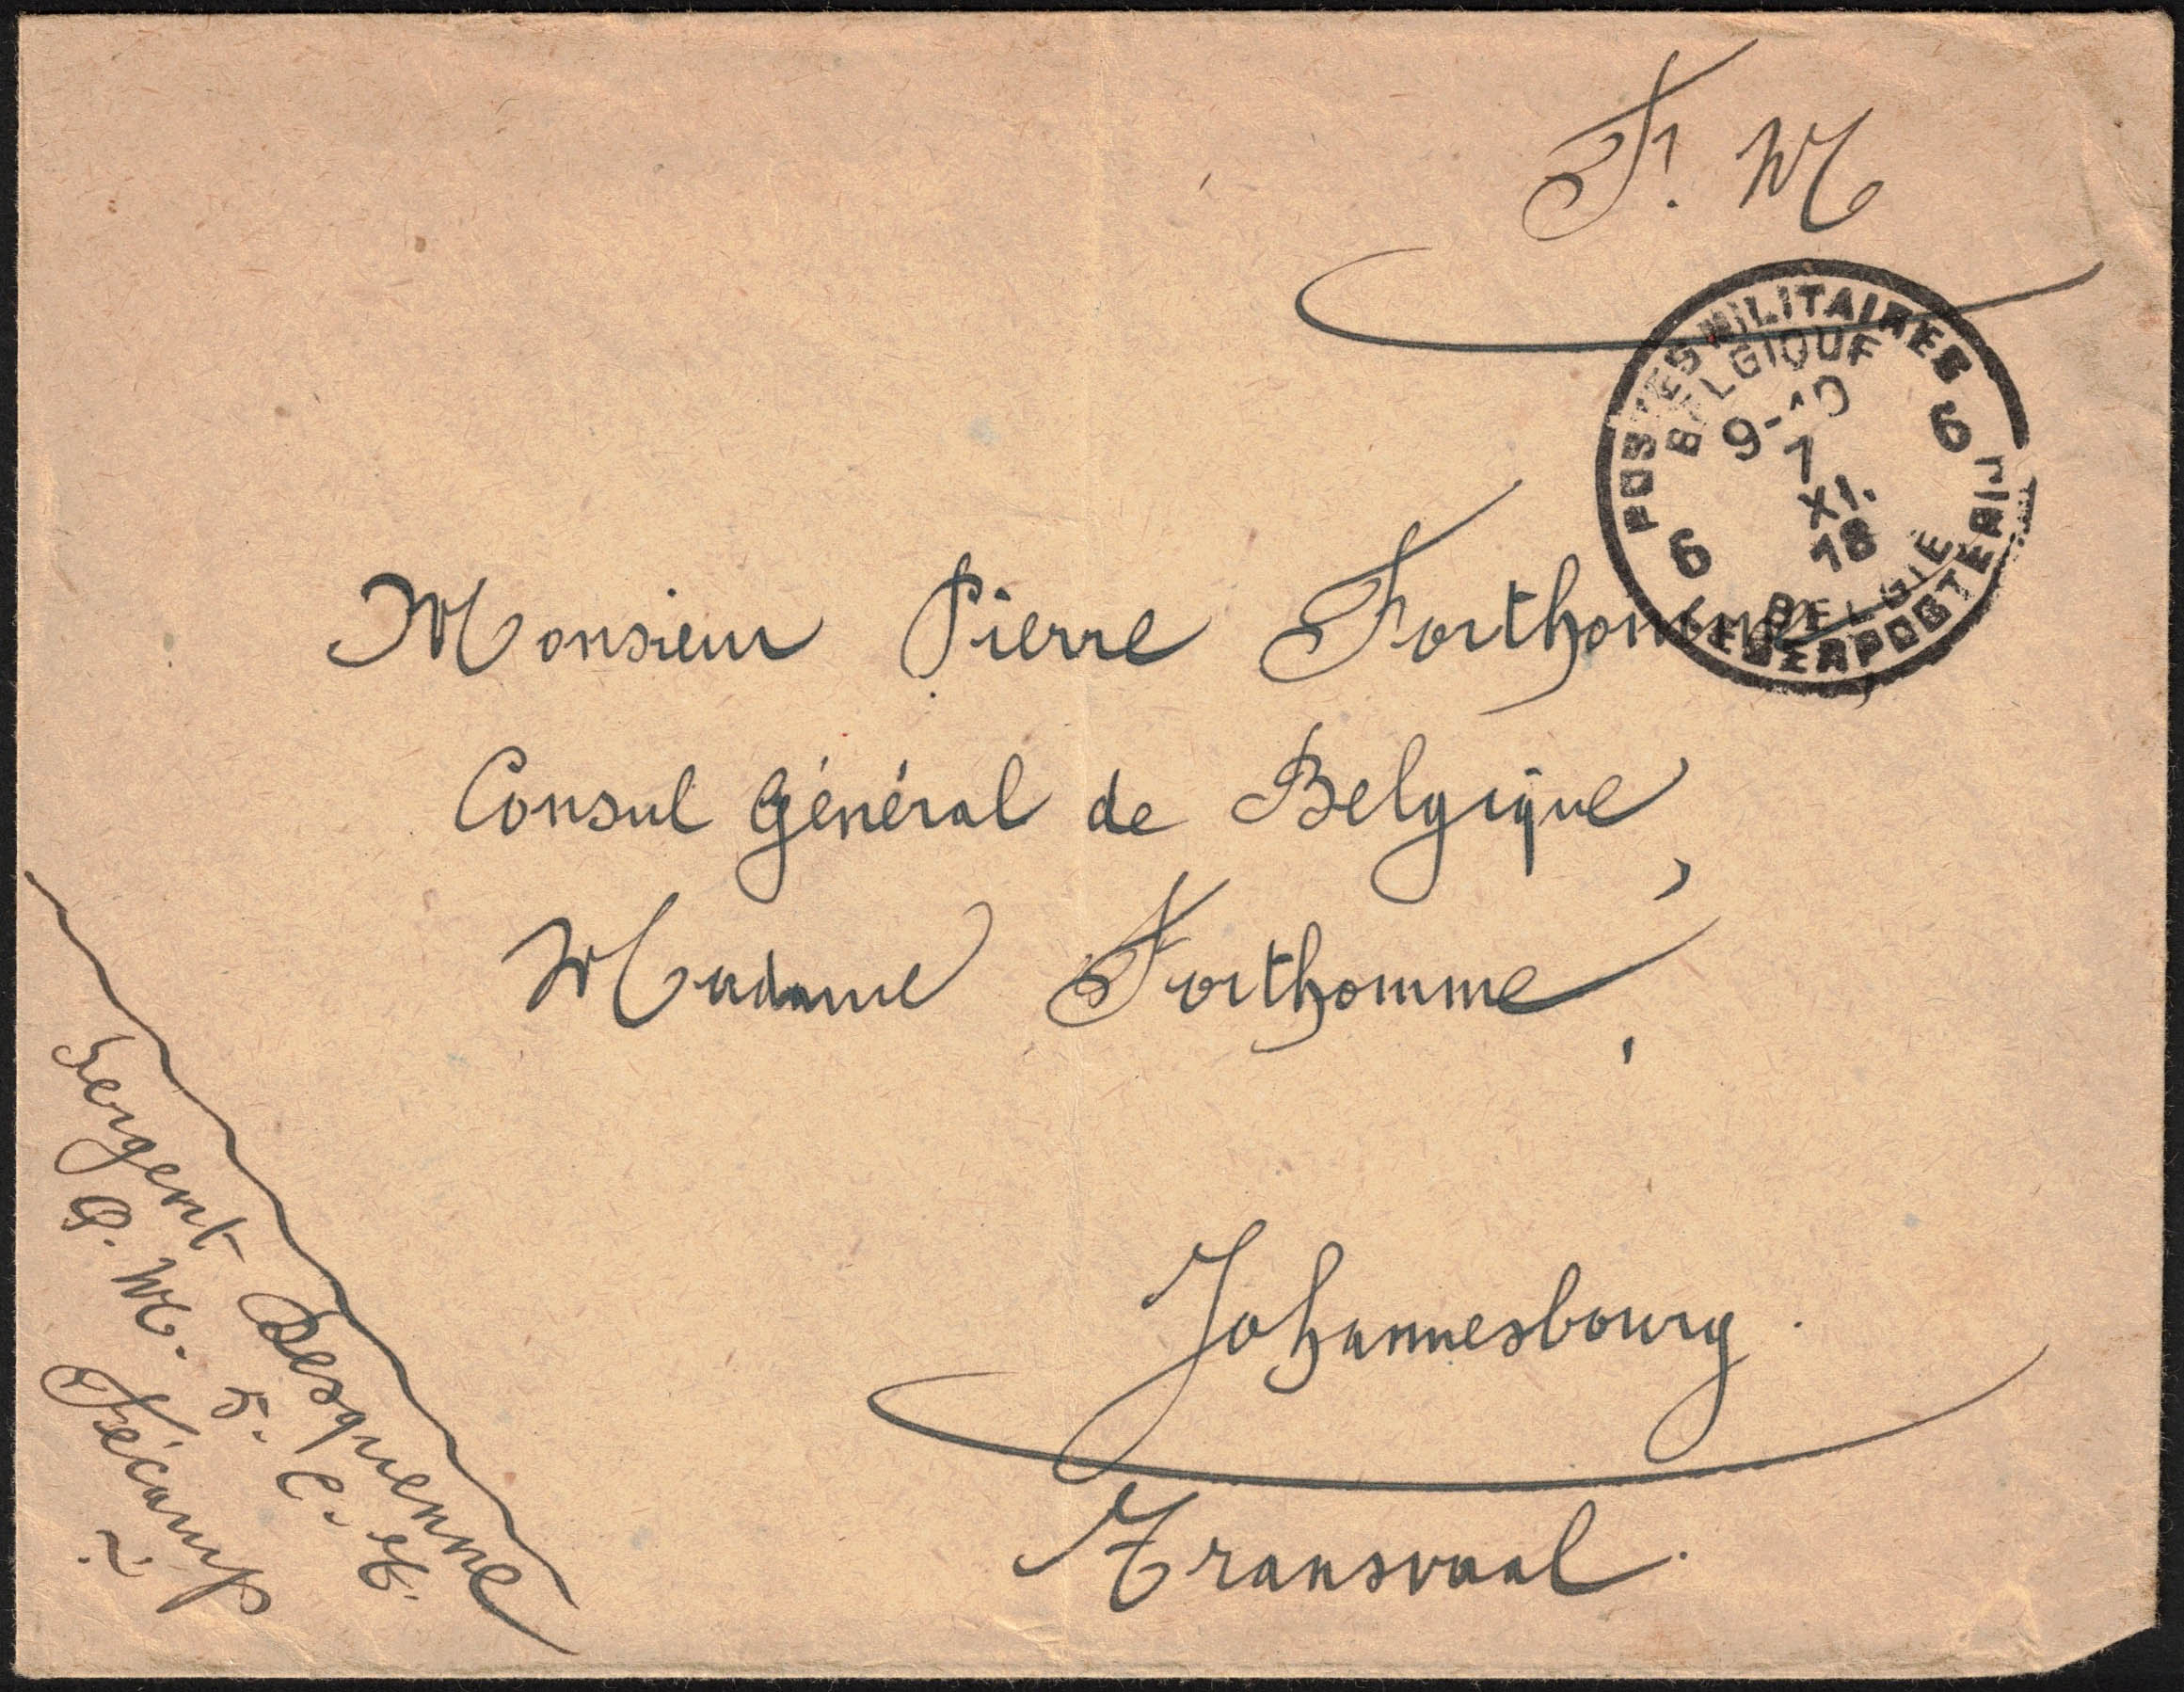 F. M
POSTES MILITAIRES
BELGIQUE
9-10
7
XI.
18
6
6
BELGIË
LEGERPOSTERIJ
Monsieur Pierre Forthomme
Consul Général de Belgique,
Madame Forthomme,
Johannesbourg.
Transvaal.
Sergent Desquenne
Q. M. 5. C. H.
Fécamp